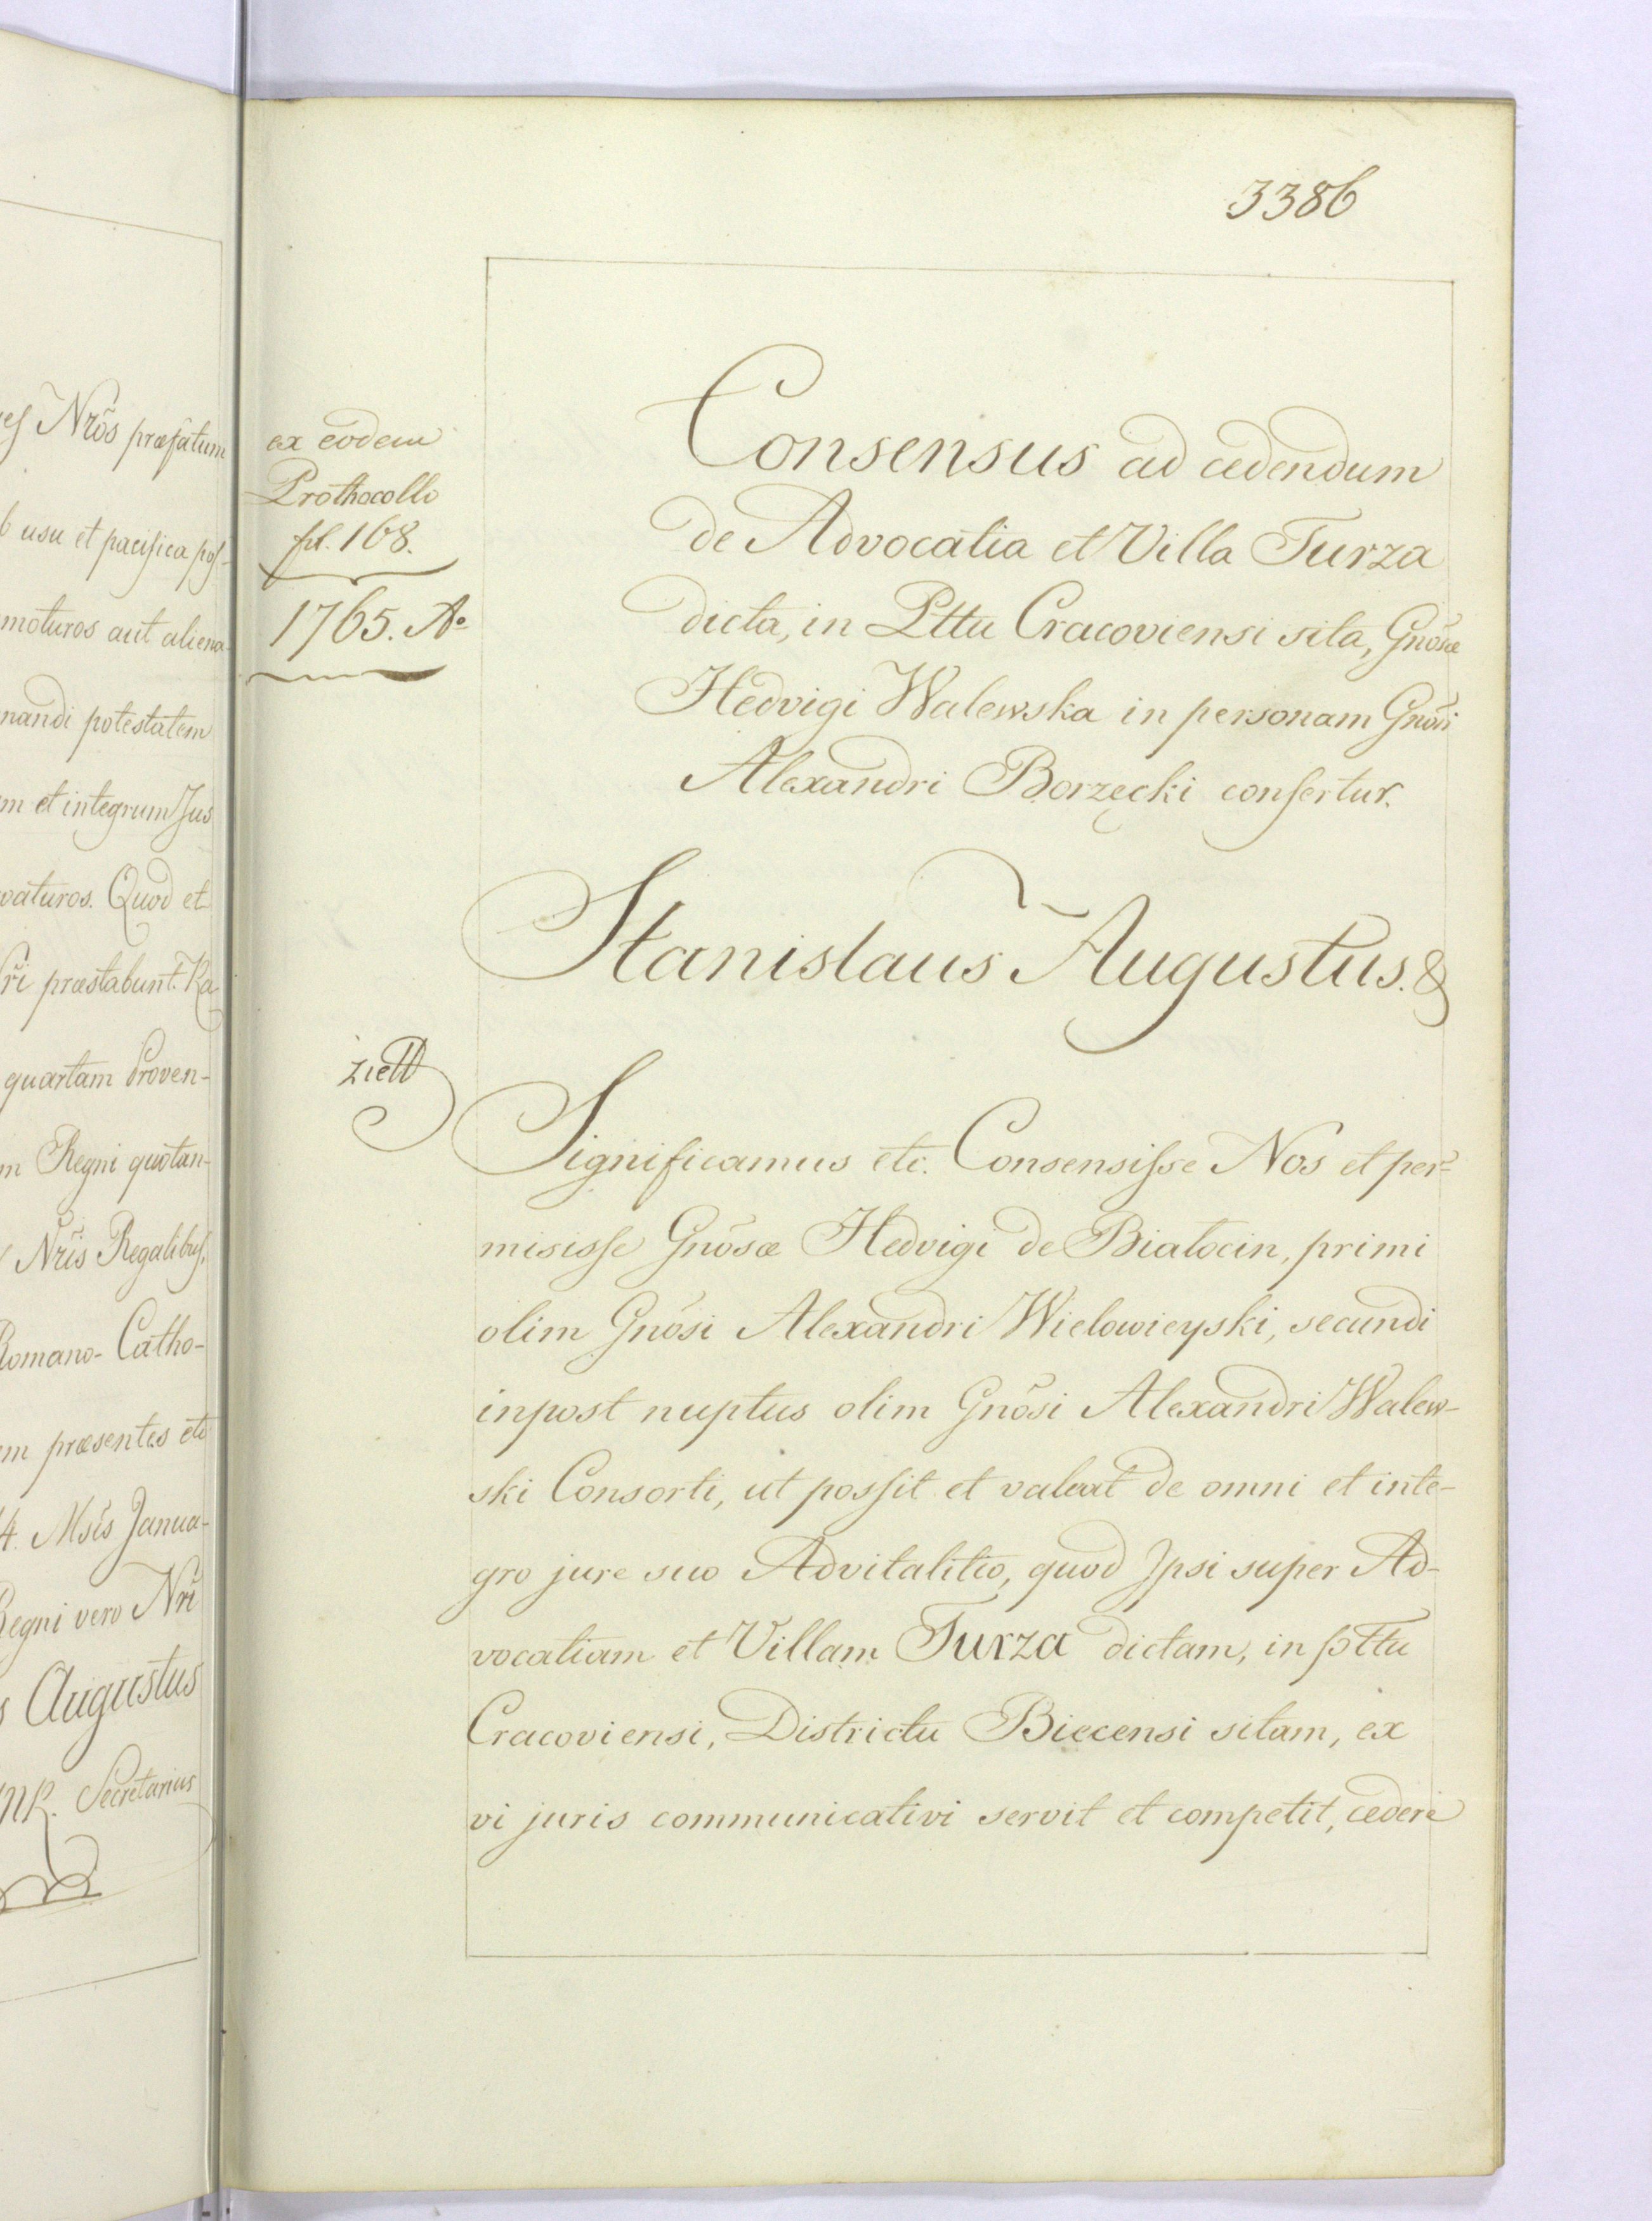 es Nrõs præfatum
usu et pacifica pos-
moturos aut aliena-
nandi potestatem
m et integrum Jus
vaturos. Quod et
ri præstabunt. Ra-
quartam Proven-
m Regni quotan-
Nris Regalibus.
Romano-Catho-
em præsentes etc
4. Msis Janua-
Regni vero Nri
s Augustus
Secretarius
3386
ex eodem
Prothocollo
fol. 168.
1765. Aº
Consensus ad cedendum
de Advocatia et Villa Turza
dicta, in Pttu Cracoviensi sita, Gnõsæ
Hedvigi Walewska in personam Gnõsi
Alexandri Borzęcki confertur.
Stanislaus Augustus. &
Significamus etc. Consensisse Nos et per-
misisse Gnõsæ Hedvigi de Białocin, primi
olim Gnõsi Alexandri Wielowieyski, secundi
inpost nuptus olim Gnõsi Alexandri Walew-
ski Consorti, ut possit et valeat de omni et inte-
gro jure suo Advitalitio, quod Ipsi super Ad-
vocatiam et Villam Turza dictam, in pttu
Cracoviensi, Districtu Biecensi sitam, ex
vi juris communicativi servit et competit, cedere